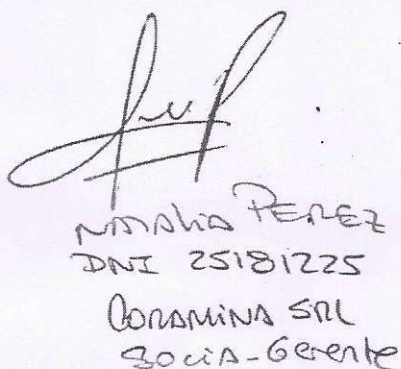 NATALIA PEREZ
DNI 25181225
CORAMINA SRL
SOCIA-Gerente